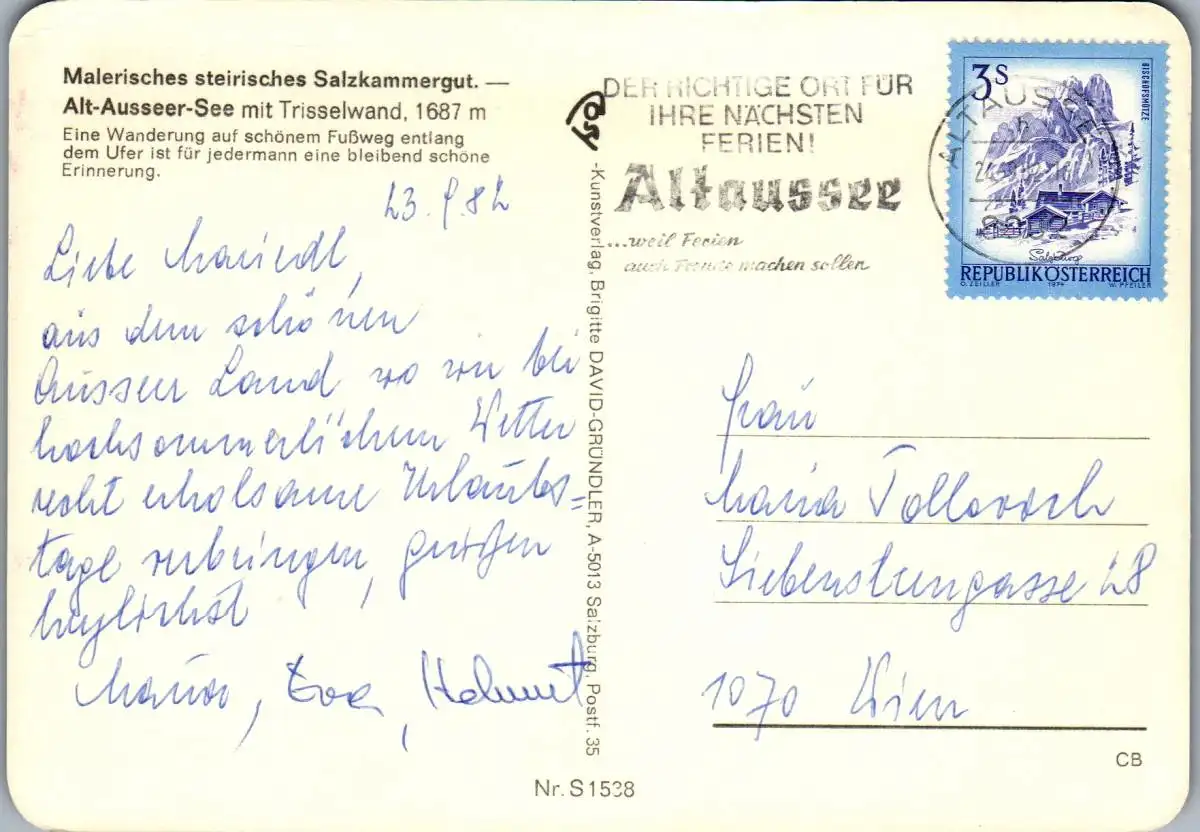 Malerisches steirisches Salzkammergut. —
Alt-Ausseer-See mit Trisselwand, 1687 m
Eine Wanderung auf schönem Fußweg entlang
dem Ufer ist für jedermann eine bleibend schöne
Erinnerung.
23.9.82
Liebe Mariedl,
aus dem schönen
Ausseer Land wo wir bei
hochsommerlichem Wetter
recht erholsame Urlaubs=
tage verbringen, grüßen
herzlichst
Maria, Eva, Helmut
-Kunstverlag, Brigitte DAVID-GRÜNDLER, A-5013 Salzburg, Postf. 35
Nr. S1538
DER RICHTIGE ORT FÜR
IHRE NÄCHSTEN
FERIEN!
Altaussee
...weil Ferien
auch Freude machen sollen
ALTAUSSEE
3S
BISCHOFSMÜTZE
Salzburg
REPUBLIK ÖSTERREICH
O. ZEILLER 1974 W. PFEILER
Frau
Maria
Siebensterngasse 28
1070 Wien
CB